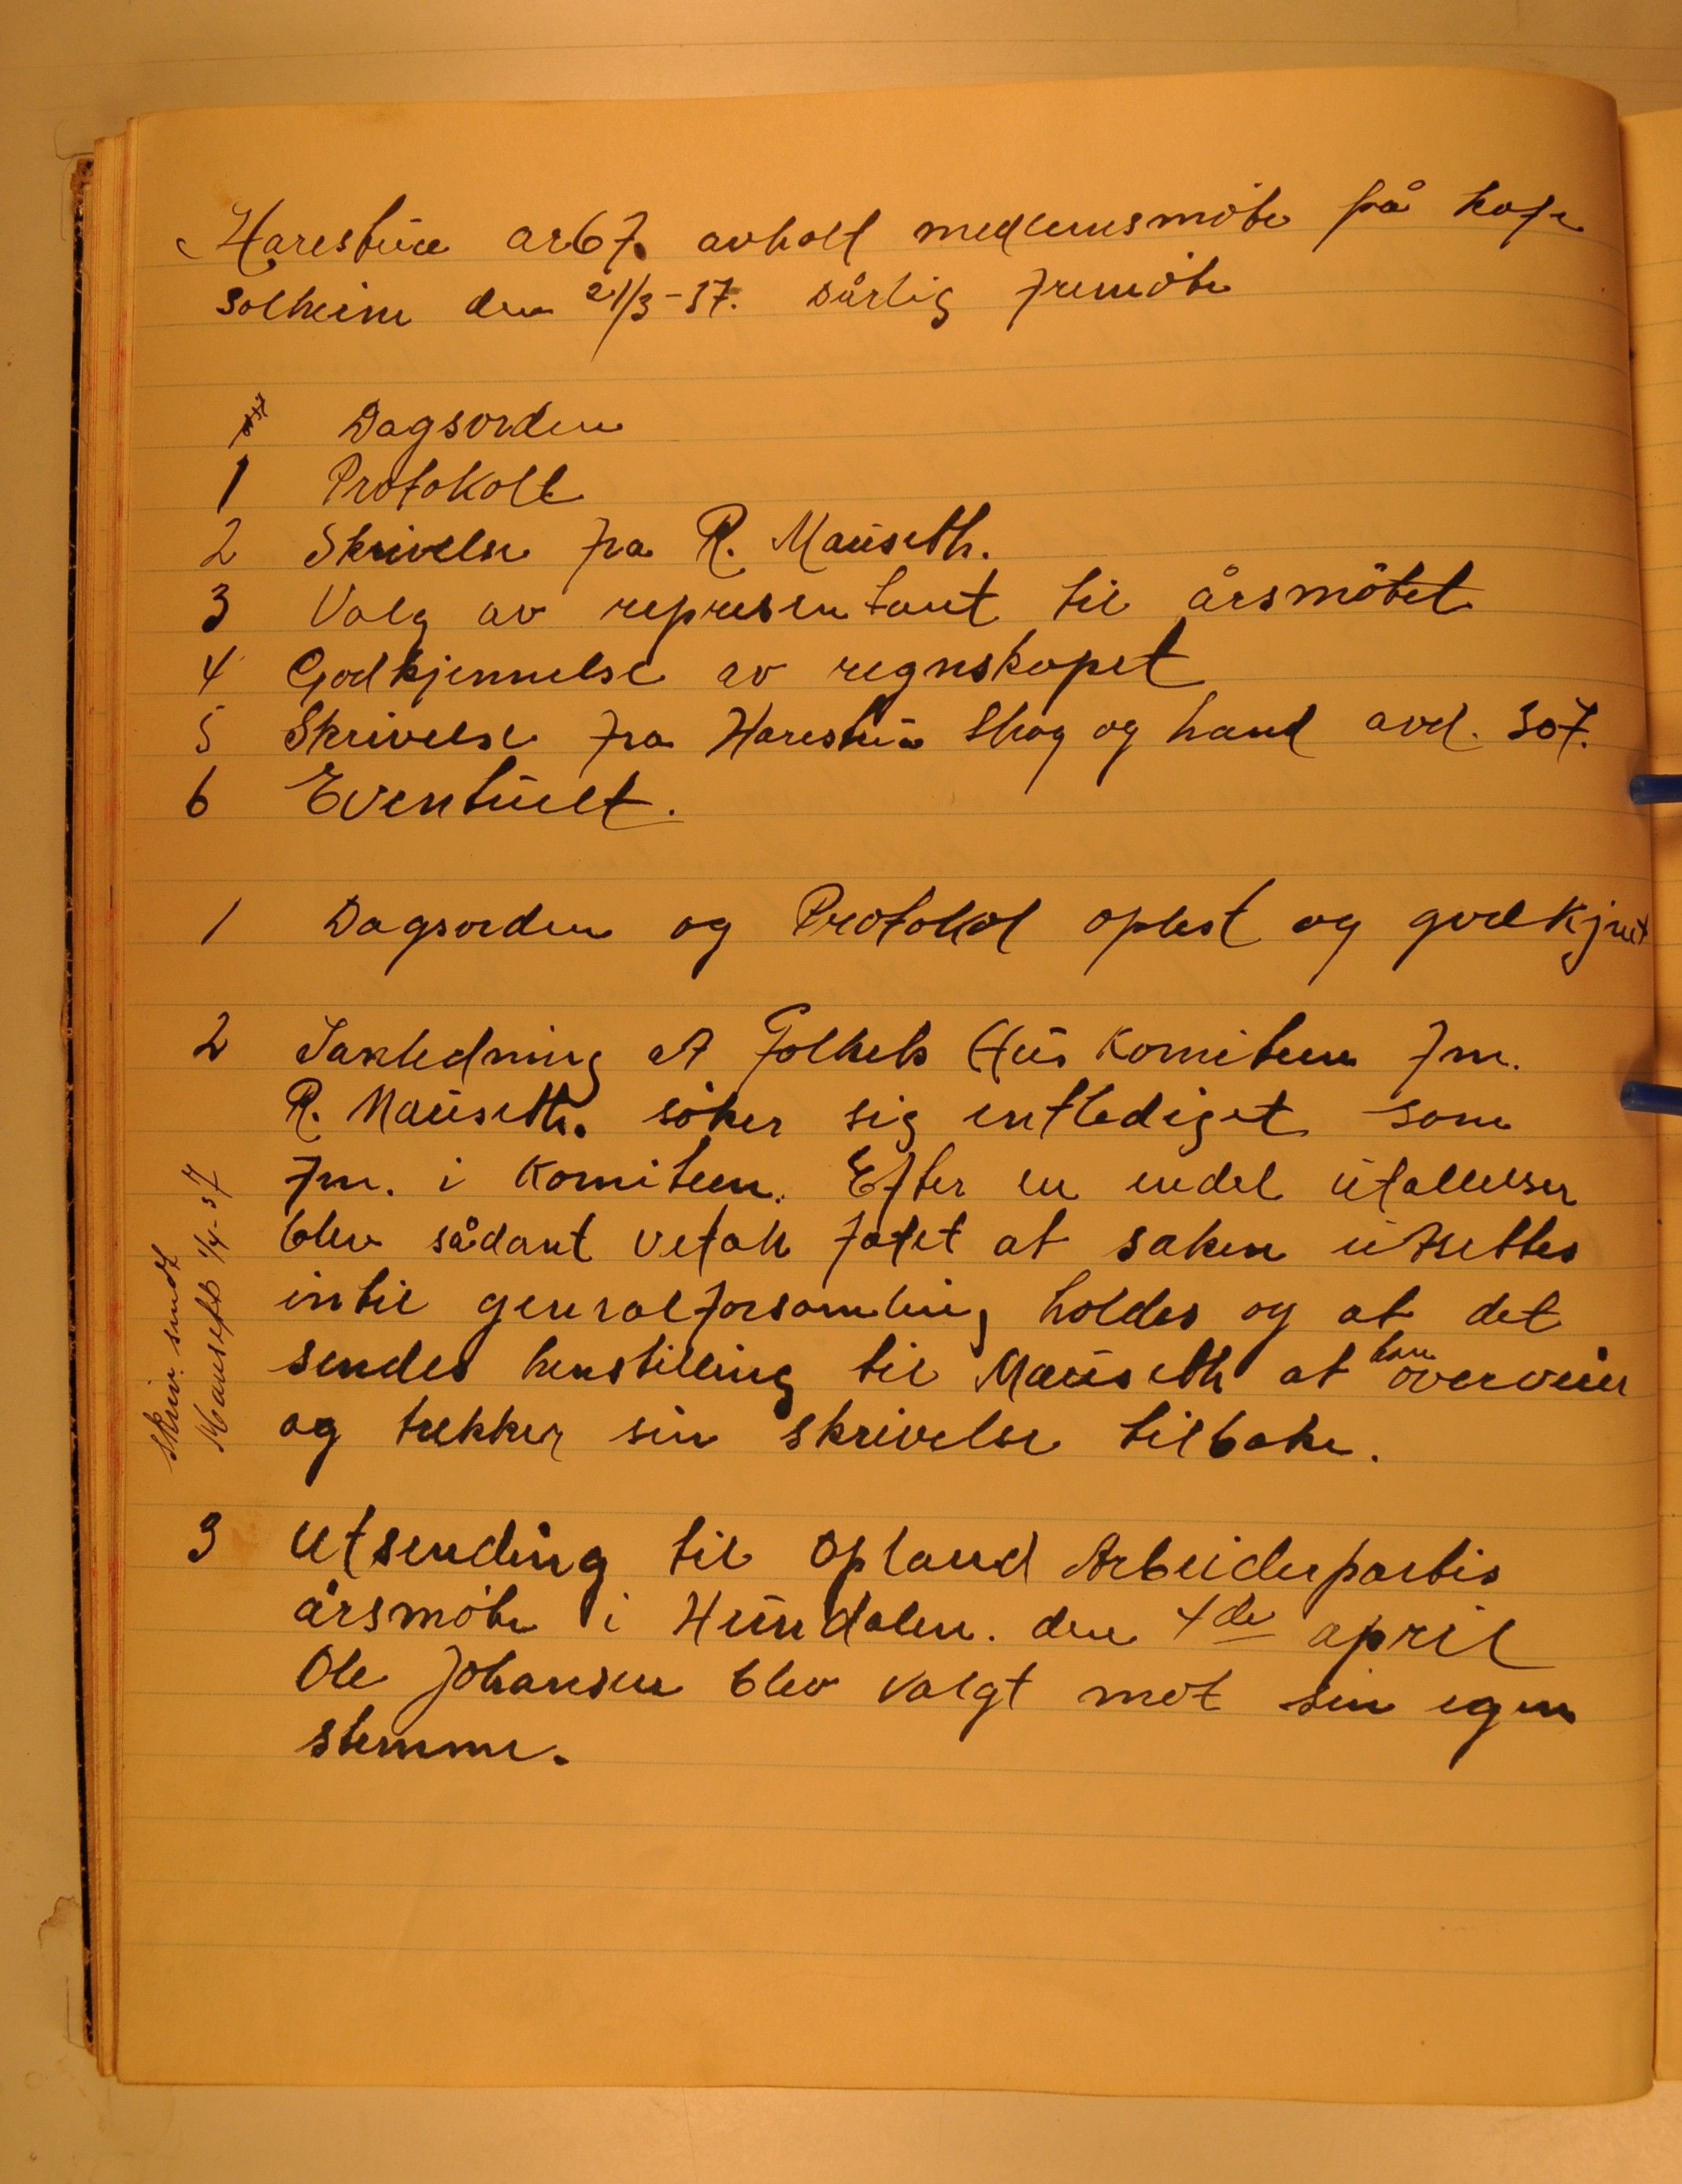 Harestua arbf. avholt medlemsmöte på kafe
Solheim den 21/3-37. Dårlig fremöte
Dagsorden
1 Protokoll
2 Skrivelse fra R. Mauseth.
3 Valg av representant til årsmötet
4 Godkjennelse av regnskapet
5 Skrivelse fra Harestua Skog og Land avd. 307.
6 Eventuelt.
1 Dagsorden og Protokol oplest og godkjent
2 Innledning at Folkets Hus Komiteens fm.
R. Mauseth. söker sig entlediget som
fm. i Komiteen. Efter en endel utallelser
blev sådant vetak fatet at saken utsettes
intil generalforsamling holdes og at det
sendes henstilling til Mauseth at han overveier
og trekker sin skrivelse tilbake.
Skriv. sendt
Mauseth 1/4-37
3 Utsending til Opland Arbeiderpartis
årsmöte i Hundalen. den 4de april
Ole Johansen blev valgt mot sin egen
stemme.